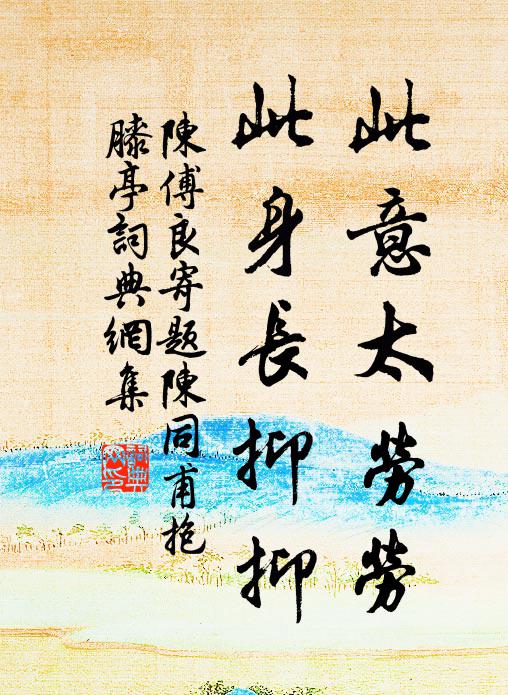 此意太勞勞
此身長抑抑
陳傅良寄題陳同甫抱
膝亭詞典網集